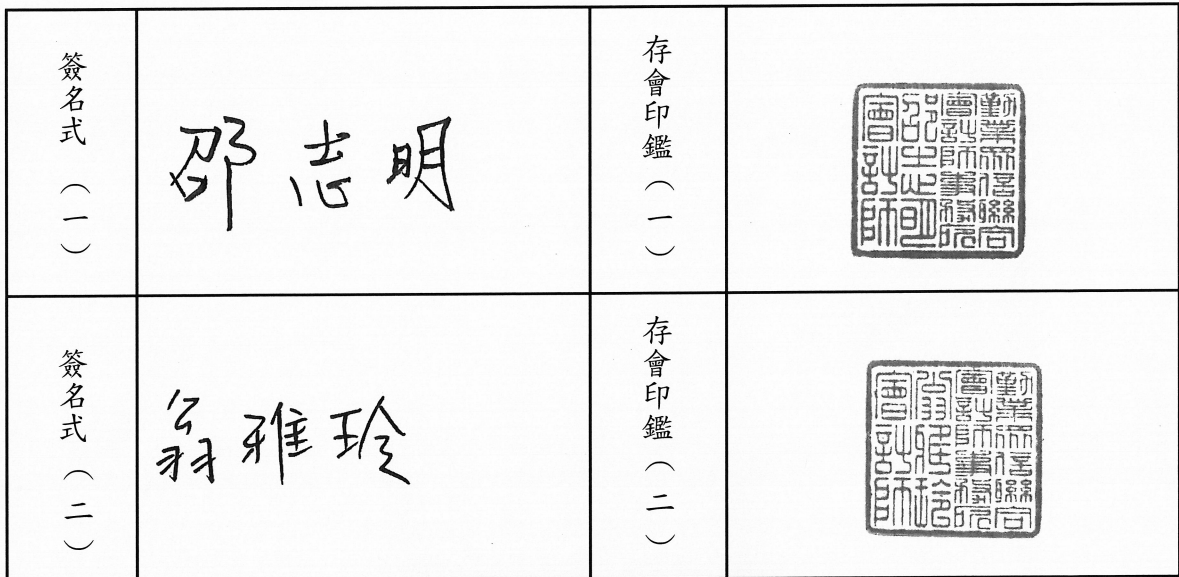 簽名式（一）
邵志明
存會印鑑（一）
勤業眾信聯合
會計師事務所
邵志明
會計師
簽名式（二）
翁雅玲
存會印鑑（二）
勤業眾信聯合
會計師事務所
翁雅玲
會計師